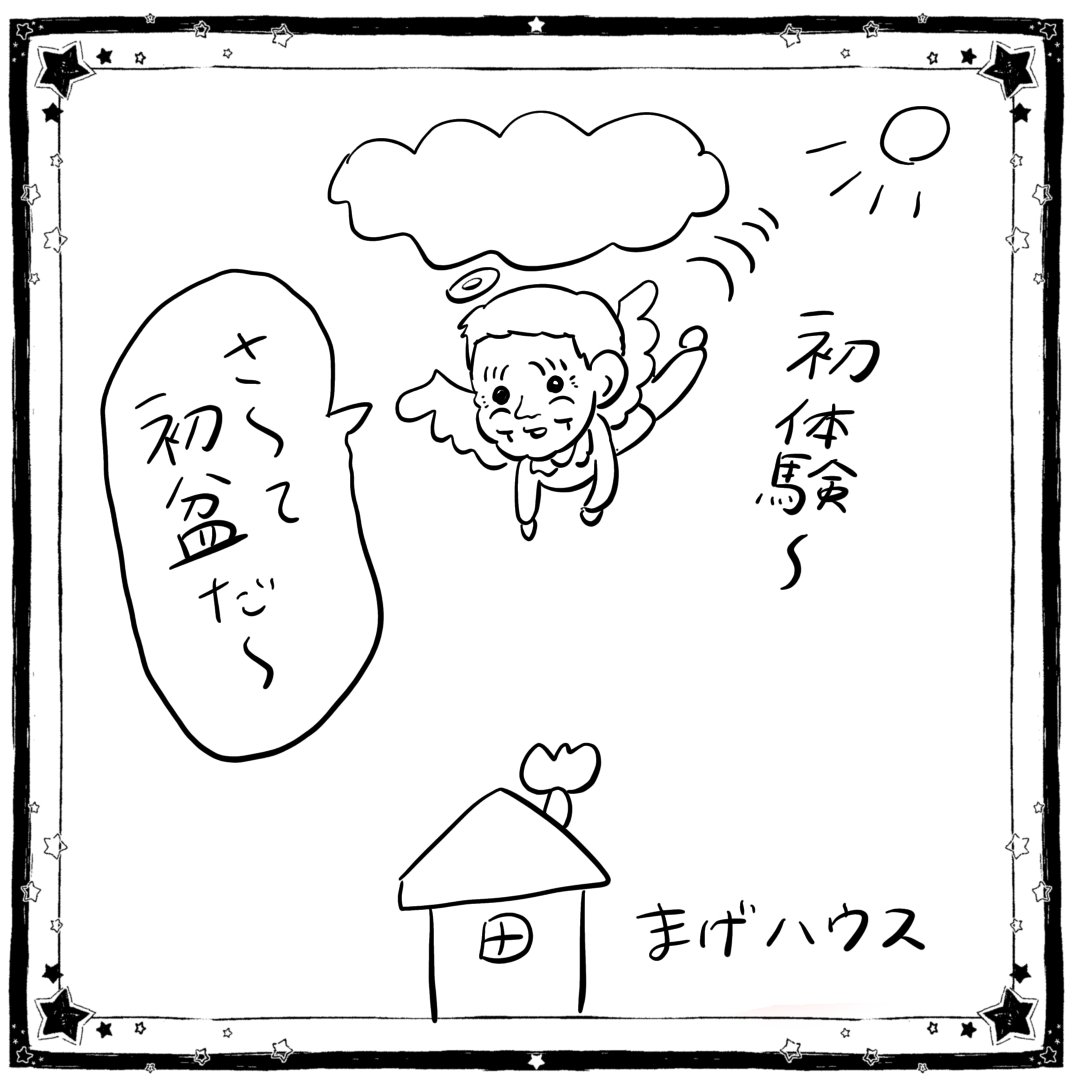 初体験〜
さ〜て
初盆だ〜
まげハウス